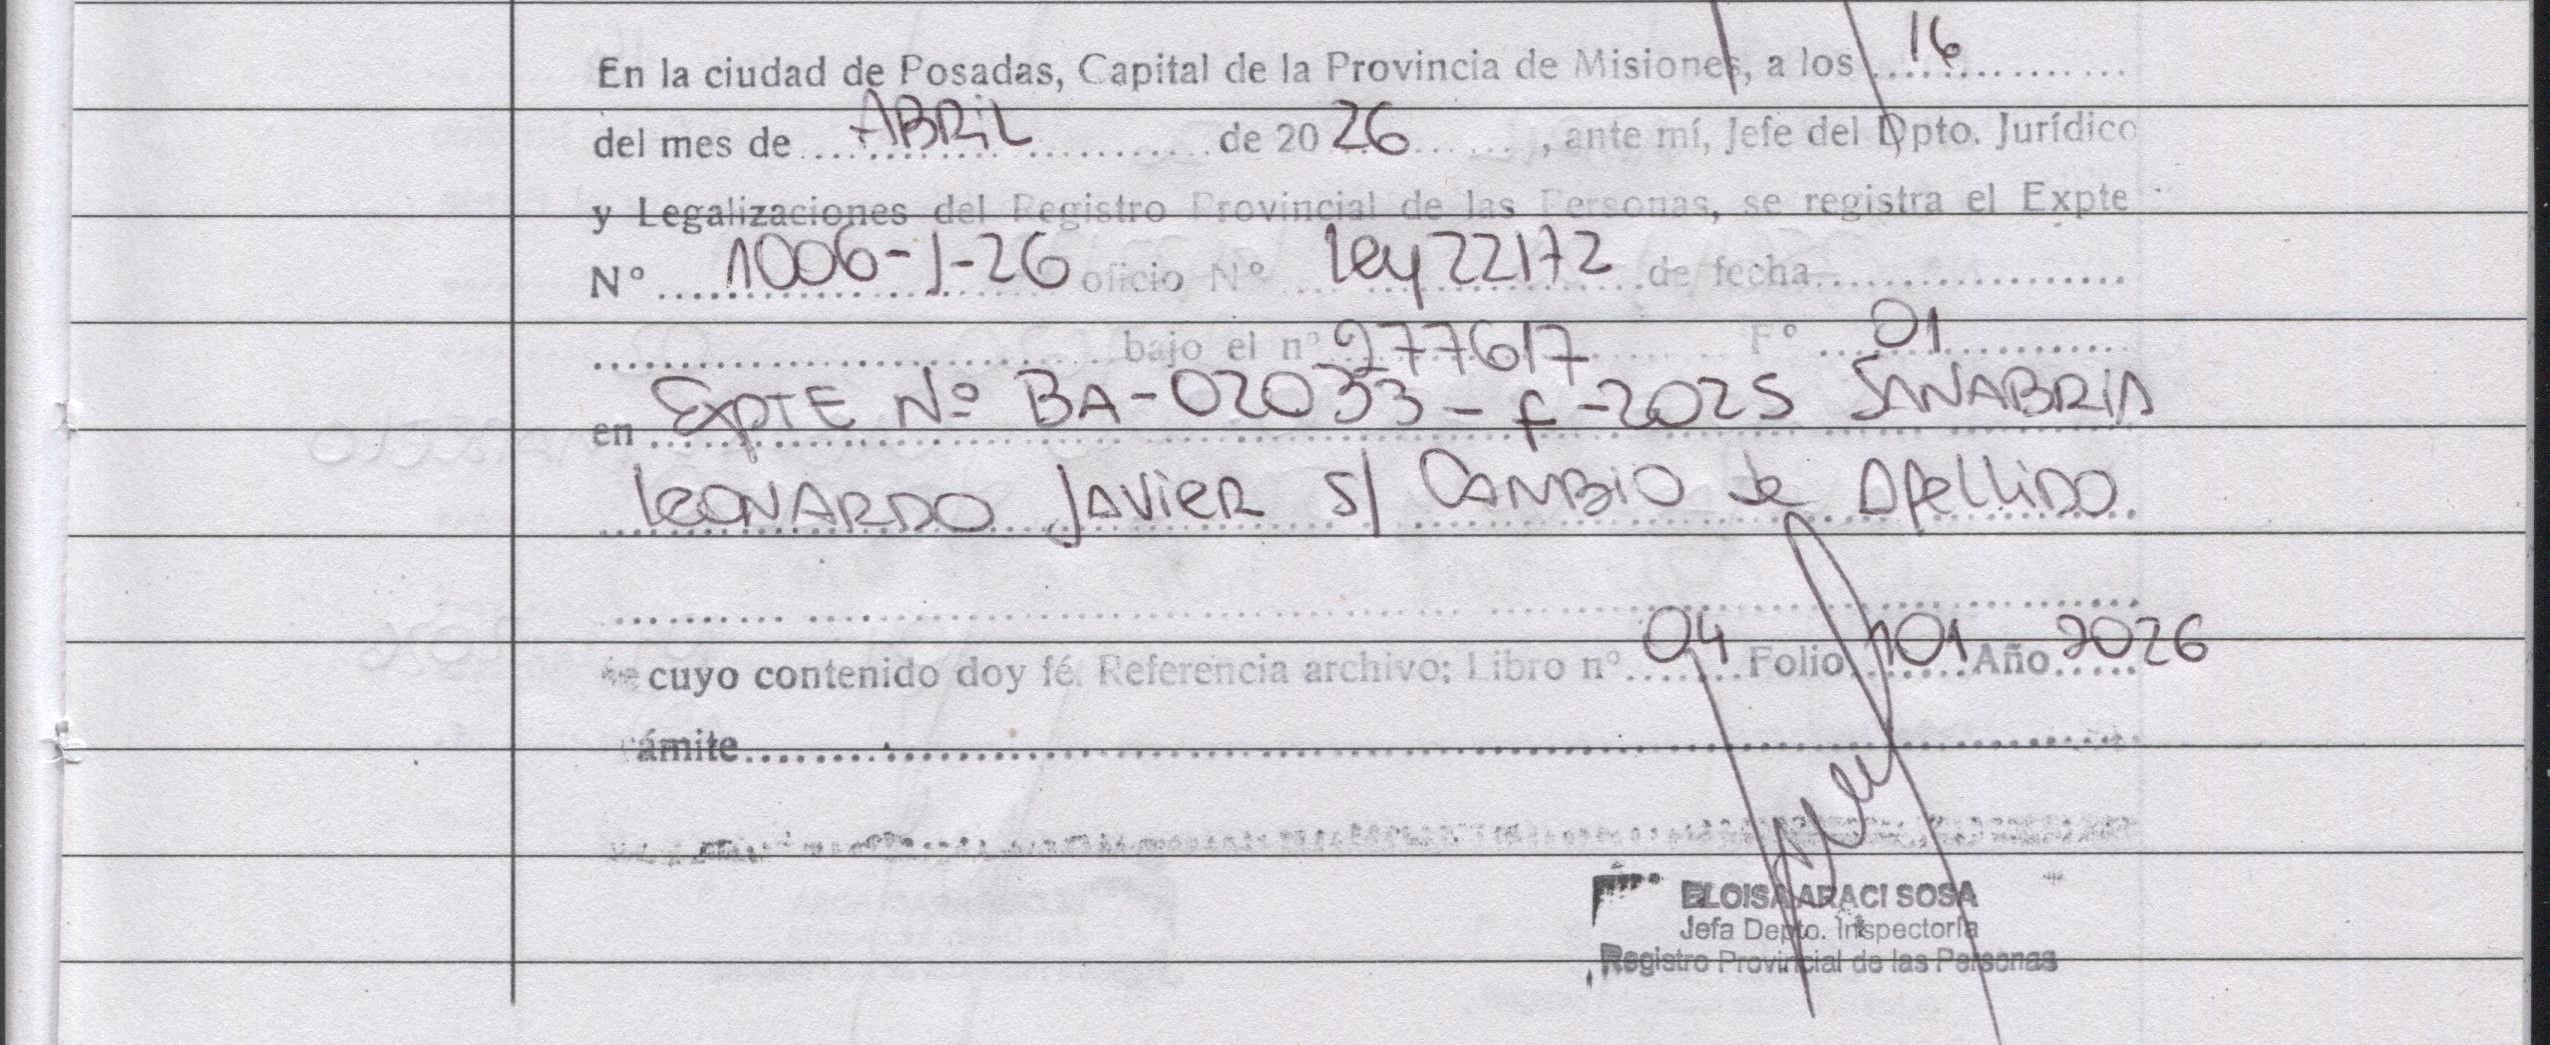 En la ciudad de Posadas, Capital de la Provincia de Misiones, a los 16
del mes de ABRIL de 20 26, ante mí, Jefe del Dpto. Jurídico
y Legalizaciones del Registro Provincial de las Personas, se registra el Expte
Nº 1006-J-26 oficio Nº ley 22172 de fecha
bajo el nº 277617 Fº 01
en Expte Nº BA-02033-f-2025 SANABRIA
LEONARDO JAVIER s/ CAMBIO de Apellido
de cuyo contenido doy fé. Referencia archivo: Libro nº 04 Folio 101 Año 2026
rámite
ELOISA ARACI SOSA
Jefa Depto. Inspectoría
Registro Provincial de las Personas